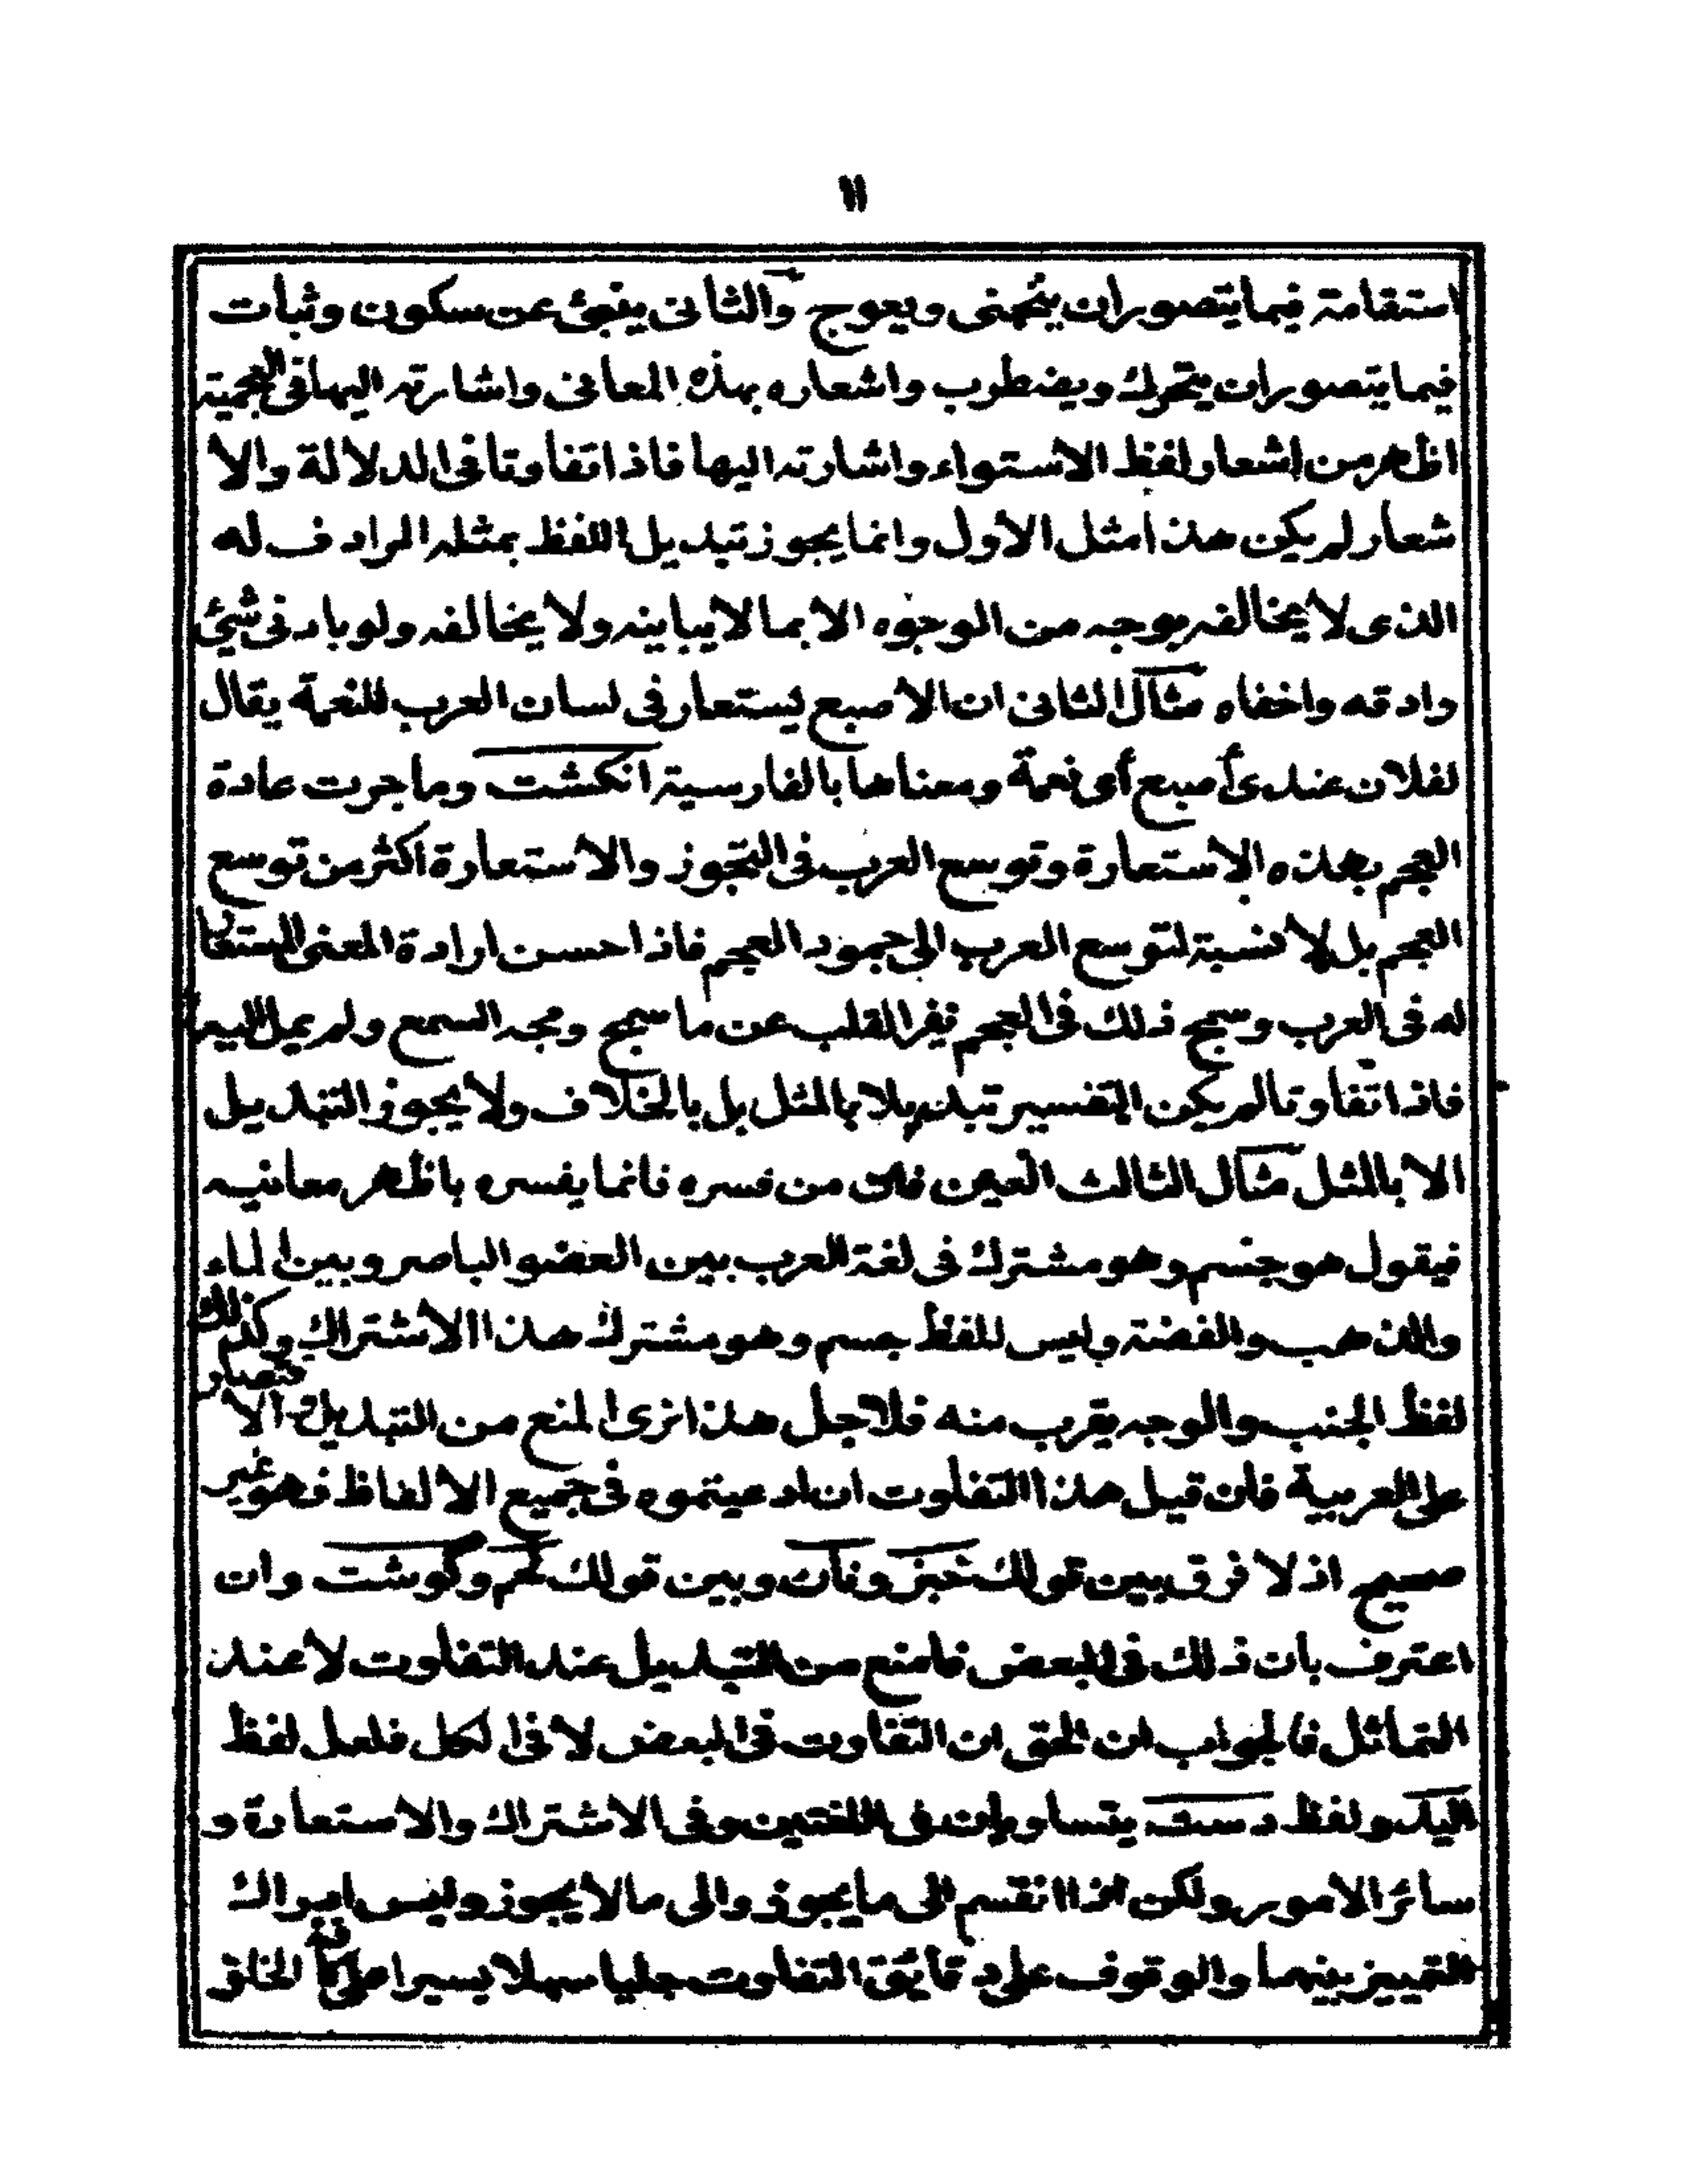 ١١
استقامة فيما يتصور ان ينحنى ويعوج والثانى ينبئ عن سكون وثبات
فيما يتصور ان يتحرك ويضطرب واشعاره بهذه المعانى واشارته اليها فى العجمية
اظهر من اشعار لفظ الاستواء واشارته اليها فاذا تفاوتا فى الدلالة والا
شعار لم يكن هذا مثل الاول وانما يجوز تبديل اللفظ بمثله المرادف له
الذى لا يخالفه بوجه من الوجوه الا بما لا يباينه ولا يخالفه ولو باد فى شئ
وادقه واخفاه مثال الثانى ان الاصبع يستعار فى لسان العرب للنعمة يقال
لفلان عندى أصبع أى نعمة ومعناها بالفارسية انكشت وما جرت عادة
العجم بهذه الاستعارة وتوسع العرب فى التجوز والاستعارة اكثر من توسع
العجم بل لا نسبة لتوسع العرب الى جمود العجم فاذا احسن ارادة المعنى المستعار
له فى العرب وسمج ذلك فى العجم نفر القلب عن ما سمج ومجه السمع ولم يمل اليه
فاذا تفاوتا لم يكن التفسير تبديلا بالمثل بل بالخلاف ولا يجوز التبديل
الا بالمثل مثال الثالث العين فان من فسره فانما يفسره باظهر معانيه
فيقول هو جشم وهو مشترك فى لغة العرب بين العضو الباصر وبين الماء
والذهب والفضة وليس للفظ جسم وهو مشترك هذا الاشتراك وكذلك
لفظ الجنب والوجه يقرب منه فلاجل هذا نرى المنع من التبديل والاقتصار
على العربية فان قيل هذا التفاوت ان ادعيتموه فى جميع الالفاظ فهو غير
صحيح اذ لا فرق بين قولك خبز ونان وبين قولك لحم وكوشت وان
اعترف بان ذلك فى البعض فامنع من التبديل عند التفاوت لا عند
التماثل فالجواب ان الحق ان التفاوت فى البعض لا فى الكل فلعل لفظ
اليد ولفظ دست يتساويان فى اللغتين وفى الاشتراك والاستعارة و
سائر الامور ولكن اذا انقسم الى ما يجوز والى ما لا يجوز وليس ادراك
التمييز بينهما والوقوف على دقائق التفاوت جليا سهلا يسيرا على كافة الخلق